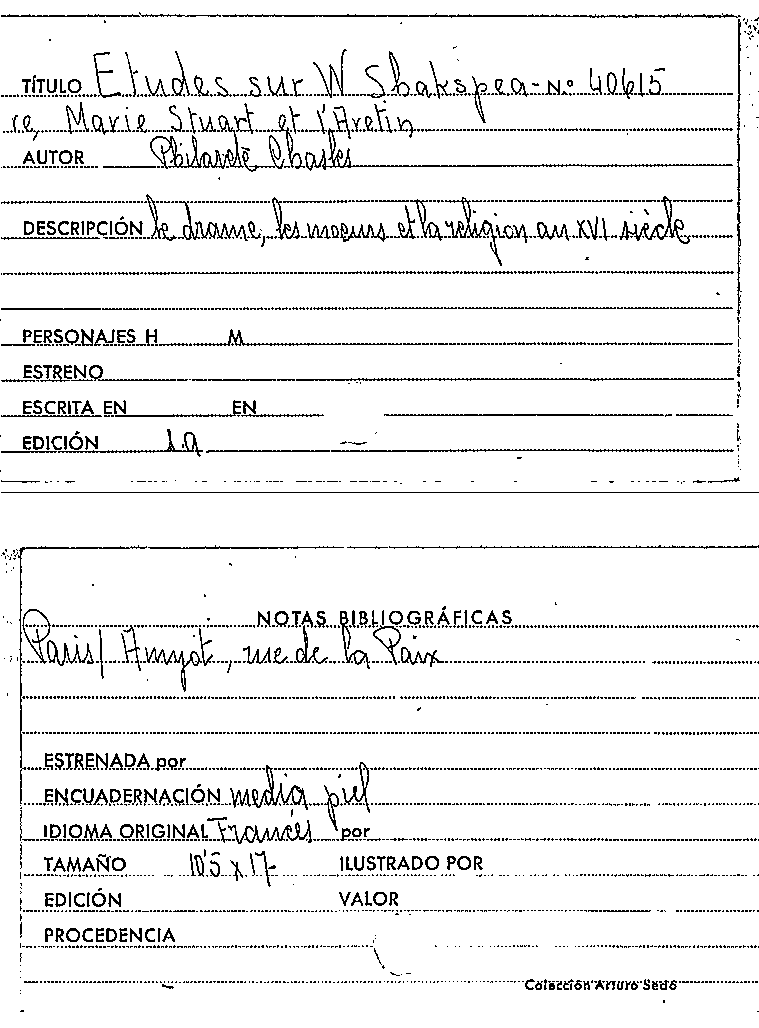 TÍTULO Etudes sur W Shakspea- N.º 40615
re, Marie Stuart et l'Aretin
AUTOR Philarète Chasles
DESCRIPCIÓN le drame, les moeurs et la religion au XVI siècle
PERSONAJES H M
ESTRENO
ESCRITA EN EN
EDICIÓN 1a
NOTAS BIBLIOGRÁFICAS
Paris/ Amyot, rue de la Paix
ESTRENADA por
ENCUADERNACIÓN media piel
IDIOMA ORIGINAL Francés por
TAMAÑO 10'5 x 17- ILUSTRADO POR
EDICIÓN VALOR
PROCEDENCIA
Colección Arturo Sedó